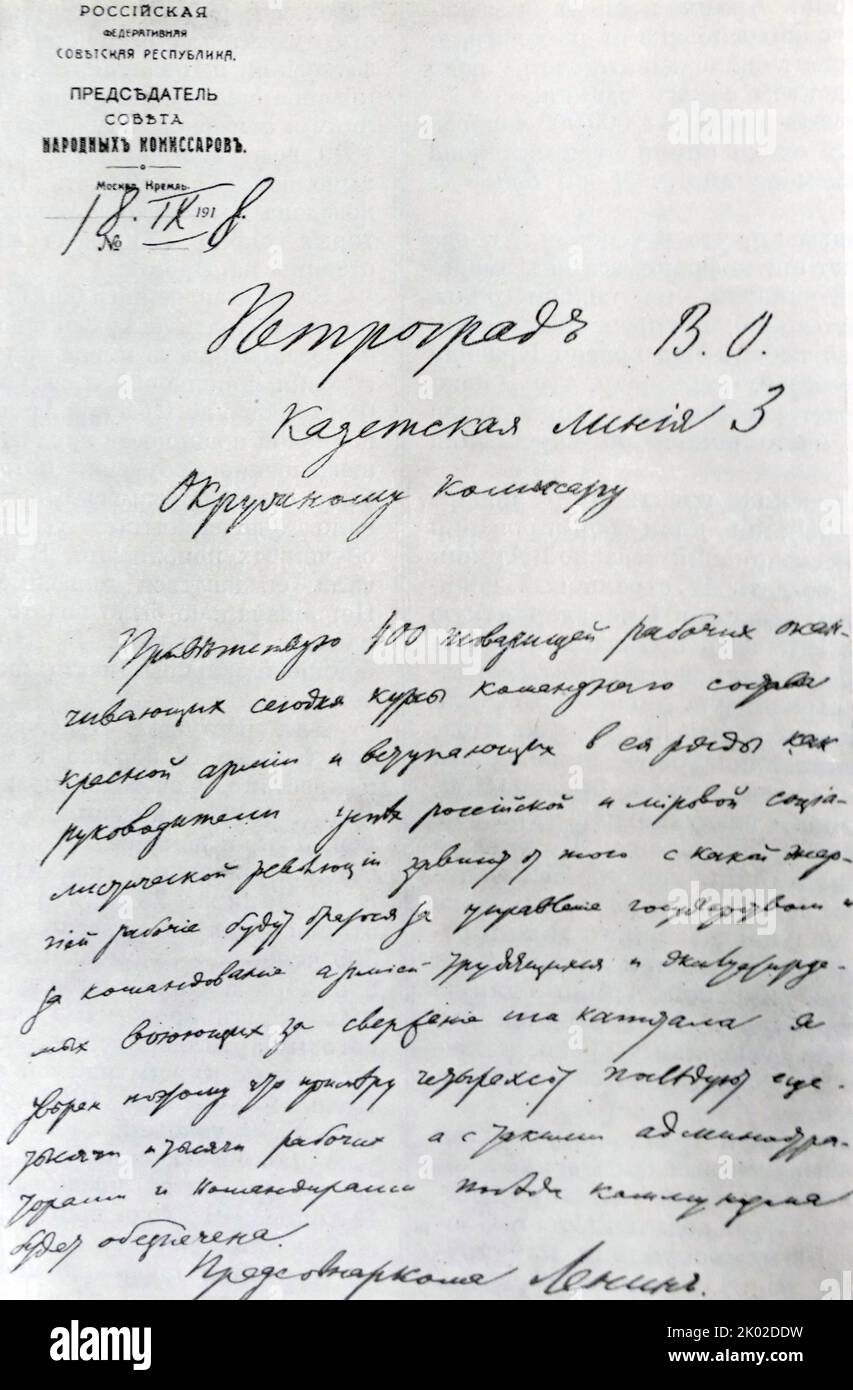 РОССІЙСКАЯ
ФЕДЕРАТИВНАЯ
СОВѢТСКАЯ РЕСПУБЛИКА.
ПРЕДСѢДАТЕЛЬ
СОВѢТА
НАРОДНЫХЪ КОМИССАРОВЪ.
Москва, Кремль.
18. IX 1918.
№
Петроградъ В. О.
Кадетская линія 3
Окружному комиссару
Привѣтствую 400 товарищей рабочих окан-
чивающих сегодня курсы командного состава
красной арміи и вступающих в ея ряды как
руководители успѣх россійской и міровой соціа-
листической революціи зависит от того с какой энер-
гіей рабочіе будут браться за управленіе государством и
за командованіе арміей трудящихся и эксплуатируе-
мых воюющих за сверженіе ига капитала я
увѣрен поэтому что примѣру четырехсот послѣдуют еще
тысячи и тысячи рабочих а с такими администра-
торами и командирами побѣда коммунизма
будет обезпечена.
Предсовнаркома Ленинъ.
alamy
alamy
alamy
alamy
Image ID: 2K02DDW
www.alamy.com